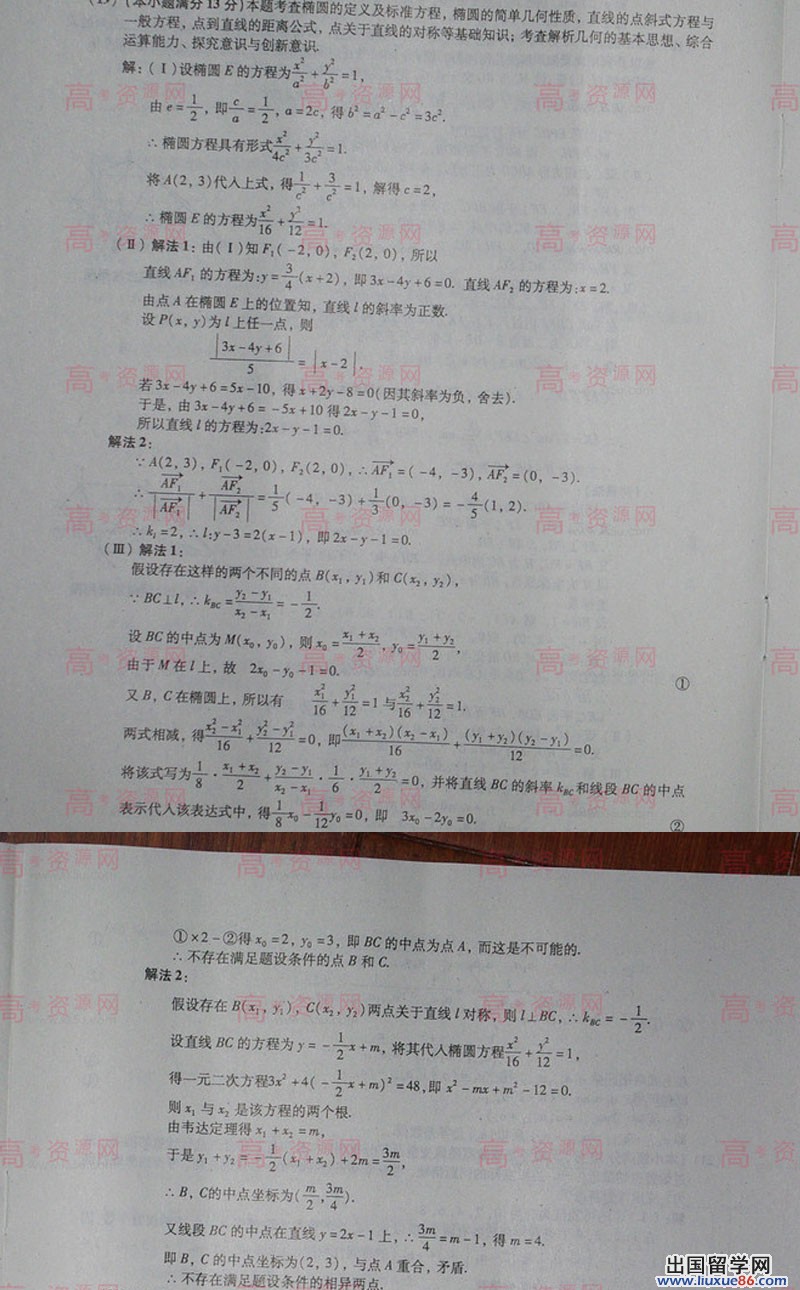 (本小题满分13分)本题考查椭圆的定义及标准方程,椭圆的简单几何性质,直线的点斜式方程与
一般方程,点到直线的距离公式,点关于直线的对称等基础知识;考查解析几何的基本思想、综合
运算能力、探究意识与创新意识.
解:(Ⅰ)设椭圆E的方程为x²/a²+y²/b²=1,
由e=1/2,即c/a=1/2,a=2c,得b²=a²-c²=3c².
∴椭圆方程具有形式x²/4c²+y²/3c²=1.
将A(2,3)代入上式,得1/c²+3/c²=1,解得c=2,
∴椭圆E的方程为x²/16+y²/12=1.
(Ⅱ)解法1:由(Ⅰ)知F₁(-2,0),F₂(2,0),所以
直线AF₁的方程为:y=3/4(x+2),即3x-4y+6=0.直线AF₂的方程为:x=2.
由点A在椭圆E上的位置知,直线l的斜率为正数.
设P(x,y)为l上任一点,则
|3x-4y+6|/5=|x-2|.
若3x-4y+6=5x-10,得x+2y-8=0(因其斜率为负,舍去).
于是,由3x-4y+6=-5x+10得2x-y-1=0,
所以直线l的方程为:2x-y-1=0.
解法2:
∵A(2,3),F₁(-2,0),F₂(2,0),∴AF₁→=(-4,-3),AF₂→=(0,-3).
∴AF₁→/|AF₁→|+AF₂→/|AF₂→|=1/5(-4,-3)+1/3(0,-3)=-4/5(1,2).
∴kₗ=2,∴l:y-3=2(x-1),即2x-y-1=0.
(Ⅲ)解法1:
假设存在这样的两个不同的点B(x₁,y₁)和C(x₂,y₂),
∵BC⊥l,∴k_BC=(y₂-y₁)/(x₂-x₁)=-1/2.
设BC的中点为M(x₀,y₀),则x₀=(x₁+x₂)/2,y₀=(y₁+y₂)/2,
由于M在l上,故 2x₀-y₀-1=0. ①
又B,C在椭圆上,所以有 x₁²/16+y₁²/12=1与x₂²/16+y₂²/12=1.
两式相减,得(x₂²-x₁²)/16+(y₂²-y₁²)/12=0,即(x₁+x₂)(x₂-x₁)/16+(y₁+y₂)(y₂-y₁)/12=0.
将该式写为1/8·(x₁+x₂)/2+(y₂-y₁)/(x₂-x₁)·1/6·(y₁+y₂)/2=0,并将直线BC的斜率k_BC和线段BC的中点
表示代入该表达式中,得1/8x₀-1/12y₀=0,即 3x₀-2y₀=0. ②
①×2-②得x₀=2,y₀=3,即BC的中点为点A,而这是不可能的.
∴不存在满足题设条件的点B和C.
解法2:
假设存在B(x₁,y₁),C(x₂,y₂)两点关于直线l对称,则l⊥BC,∴k_BC=-1/2.
设直线BC的方程为y=-1/2x+m,将其代入椭圆方程x²/16+y²/12=1,
得一元二次方程3x²+4(-1/2x+m)²=48,即x²-mx+m²-12=0.
则x₁与x₂是该方程的两个根.
由韦达定理得x₁+x₂=m,
于是y₁+y₂=-1/2(x₁+x₂)+2m=3m/2,
∴B,C的中点坐标为(m/2,3m/4).
又线段BC的中点在直线y=2x-1上,∴3m/4=m-1,得m=4.
即B,C的中点坐标为(2,3),与点A重合,矛盾.
∴不存在满足题设条件的相异两点.
出国留学网
www.liuxue86.com